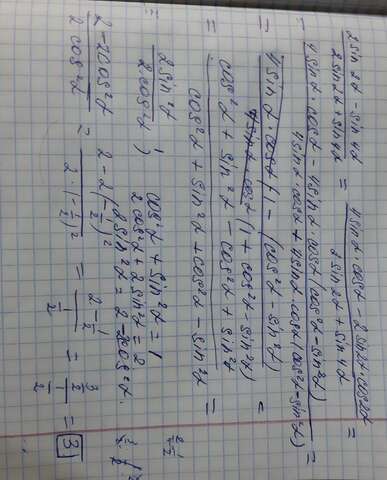 2sin2α - sin4α / 2sin2α + sin4α = 4sinα·cosα - 2sin2α·cos2α / 2sin2α + sin4α =
= 4sinα·cosα - 4sinα·cosα(cos²α - sin²α) / 4sinα·cosα + 4sinα·cosα(cos²α - sin²α) =
= 4sinα·cosα(1 - (cos²α - sin²α)) / 4sinα·cosα(1 + cos²α - sin²α) =
= cos²α + sin²α - cos²α + sin²α / cos²α + sin²α + cos²α - sin²α =
= 2sin²α / 2cos²α
cos²α + sin²α = 1
2cos²α + 2sin²α = 2
2sin²α = 2 - 2cos²α.
2 - 2cos²α / 2cos²α = 2 - 2(-1/2)² / 2·(-1/2)² = 2 - 1/2 / 1/2 = 3/2 / 1/2 = 3